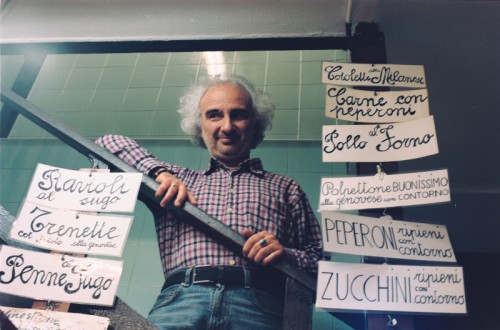 Ravioli
al sugo
Trenette
col pesto alla genovese
Penne al Sugo
Cotoletta alla Melanese
Carne con
peperoni
Pollo al Forno
Polpettone BUONISSIMO
alla genovese con CONTORNO
PEPERONI ripieni
con
contorno
ZUCCHINI ripieni
con
contorno